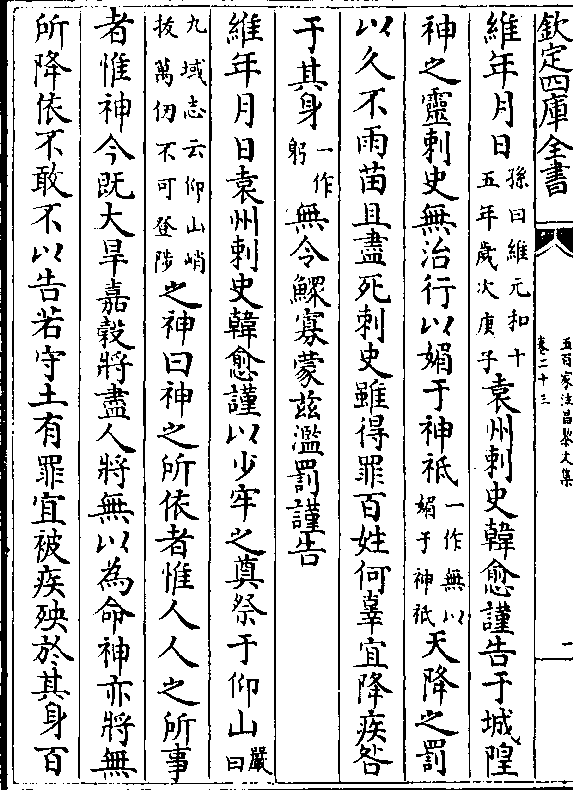 欽定四庫全書
五百家注昌黎文集
卷二十三
二
維年月日孫曰維元和十五年歲次庚子袁州刺史韓愈謹告于城隍
神之靈刺史無治行以媚于神祇一作無以媚于神祇天降之罰
以久不雨苗且盡死刺史雖得罪百姓何辜宜降疾咎
于其身一作躬無令鰥寡蒙茲濫罰謹告
維年月日袁州刺史韓愈謹以少牢之奠祭于仰山嚴曰
九域志云仰山峭拔萬仞不可登陟之神曰神之所依者惟人人之所事
者惟神今既大旱嘉穀將盡人將無以為命神亦將無
所降依不敢不以告若守土有罪宜被疾殃於其身百